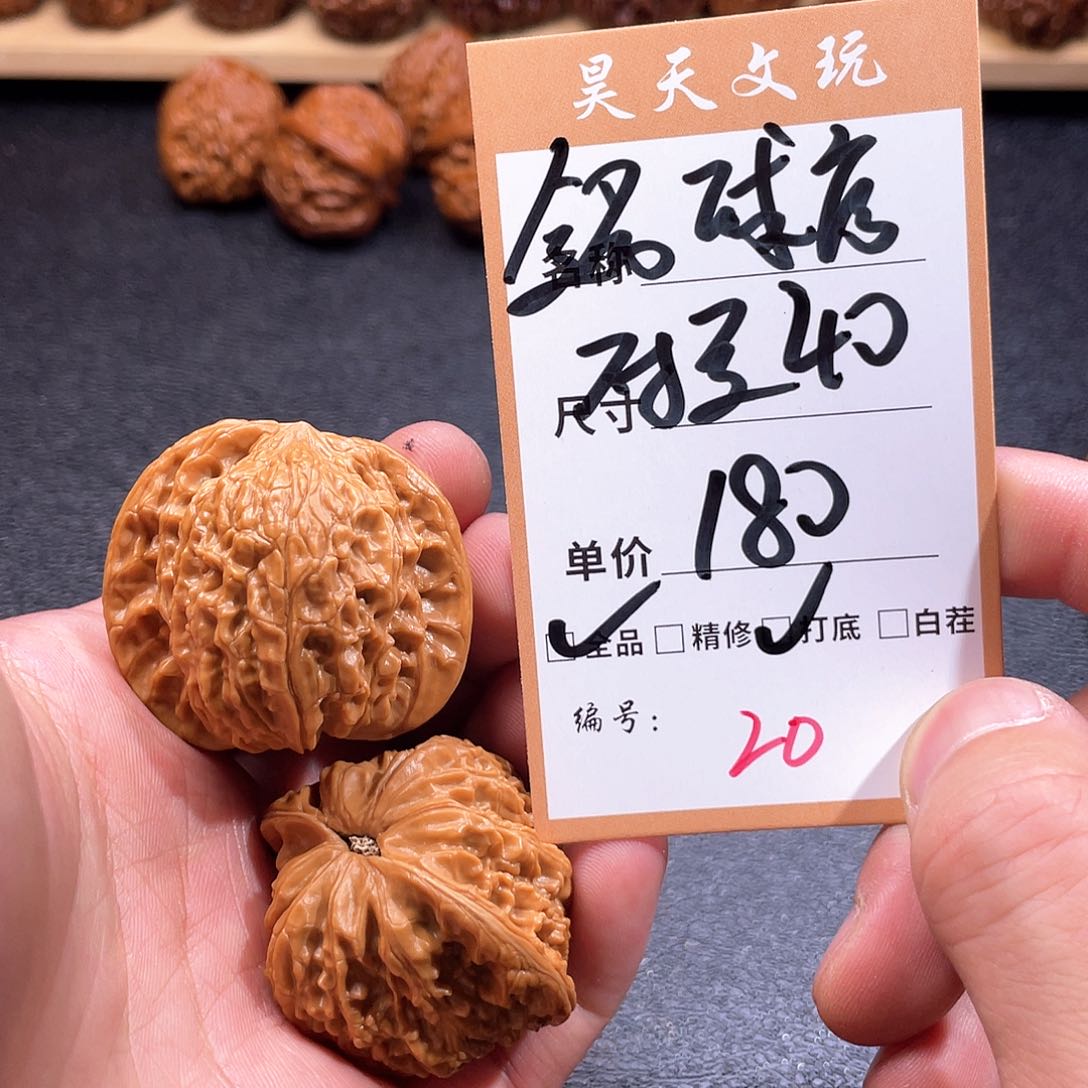 昊天文玩
名称
尺寸 40
单价 180
全品 精修 打底 白茬
编号: 20